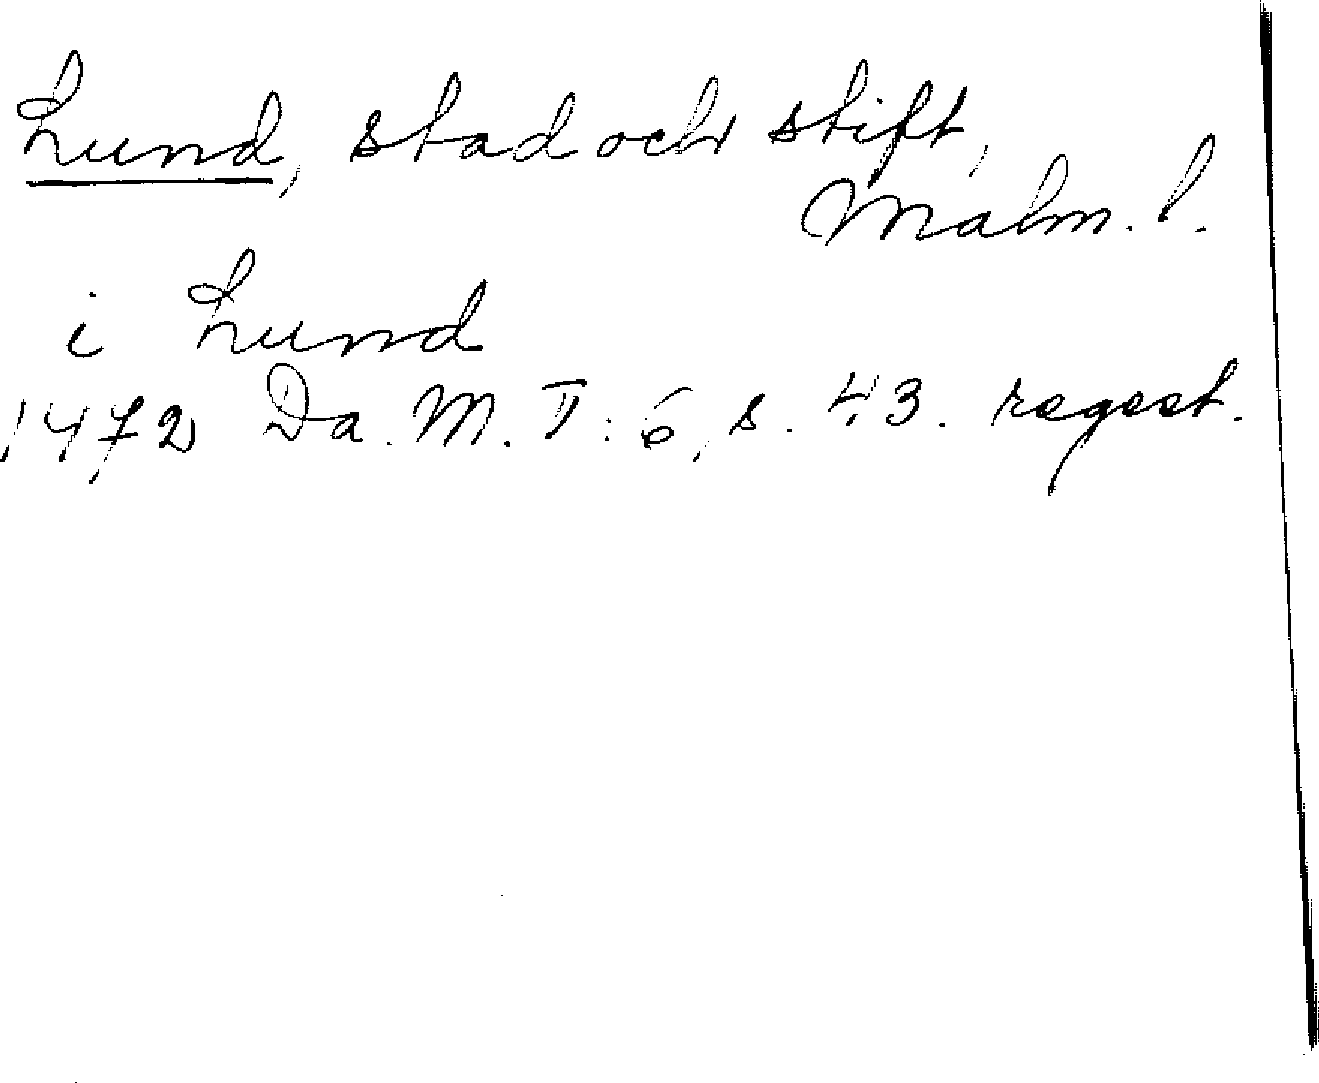 Lund, stad och stift,
Malm. l.
i Lund
1472 Da. M. V: 6, s. 43. regest.